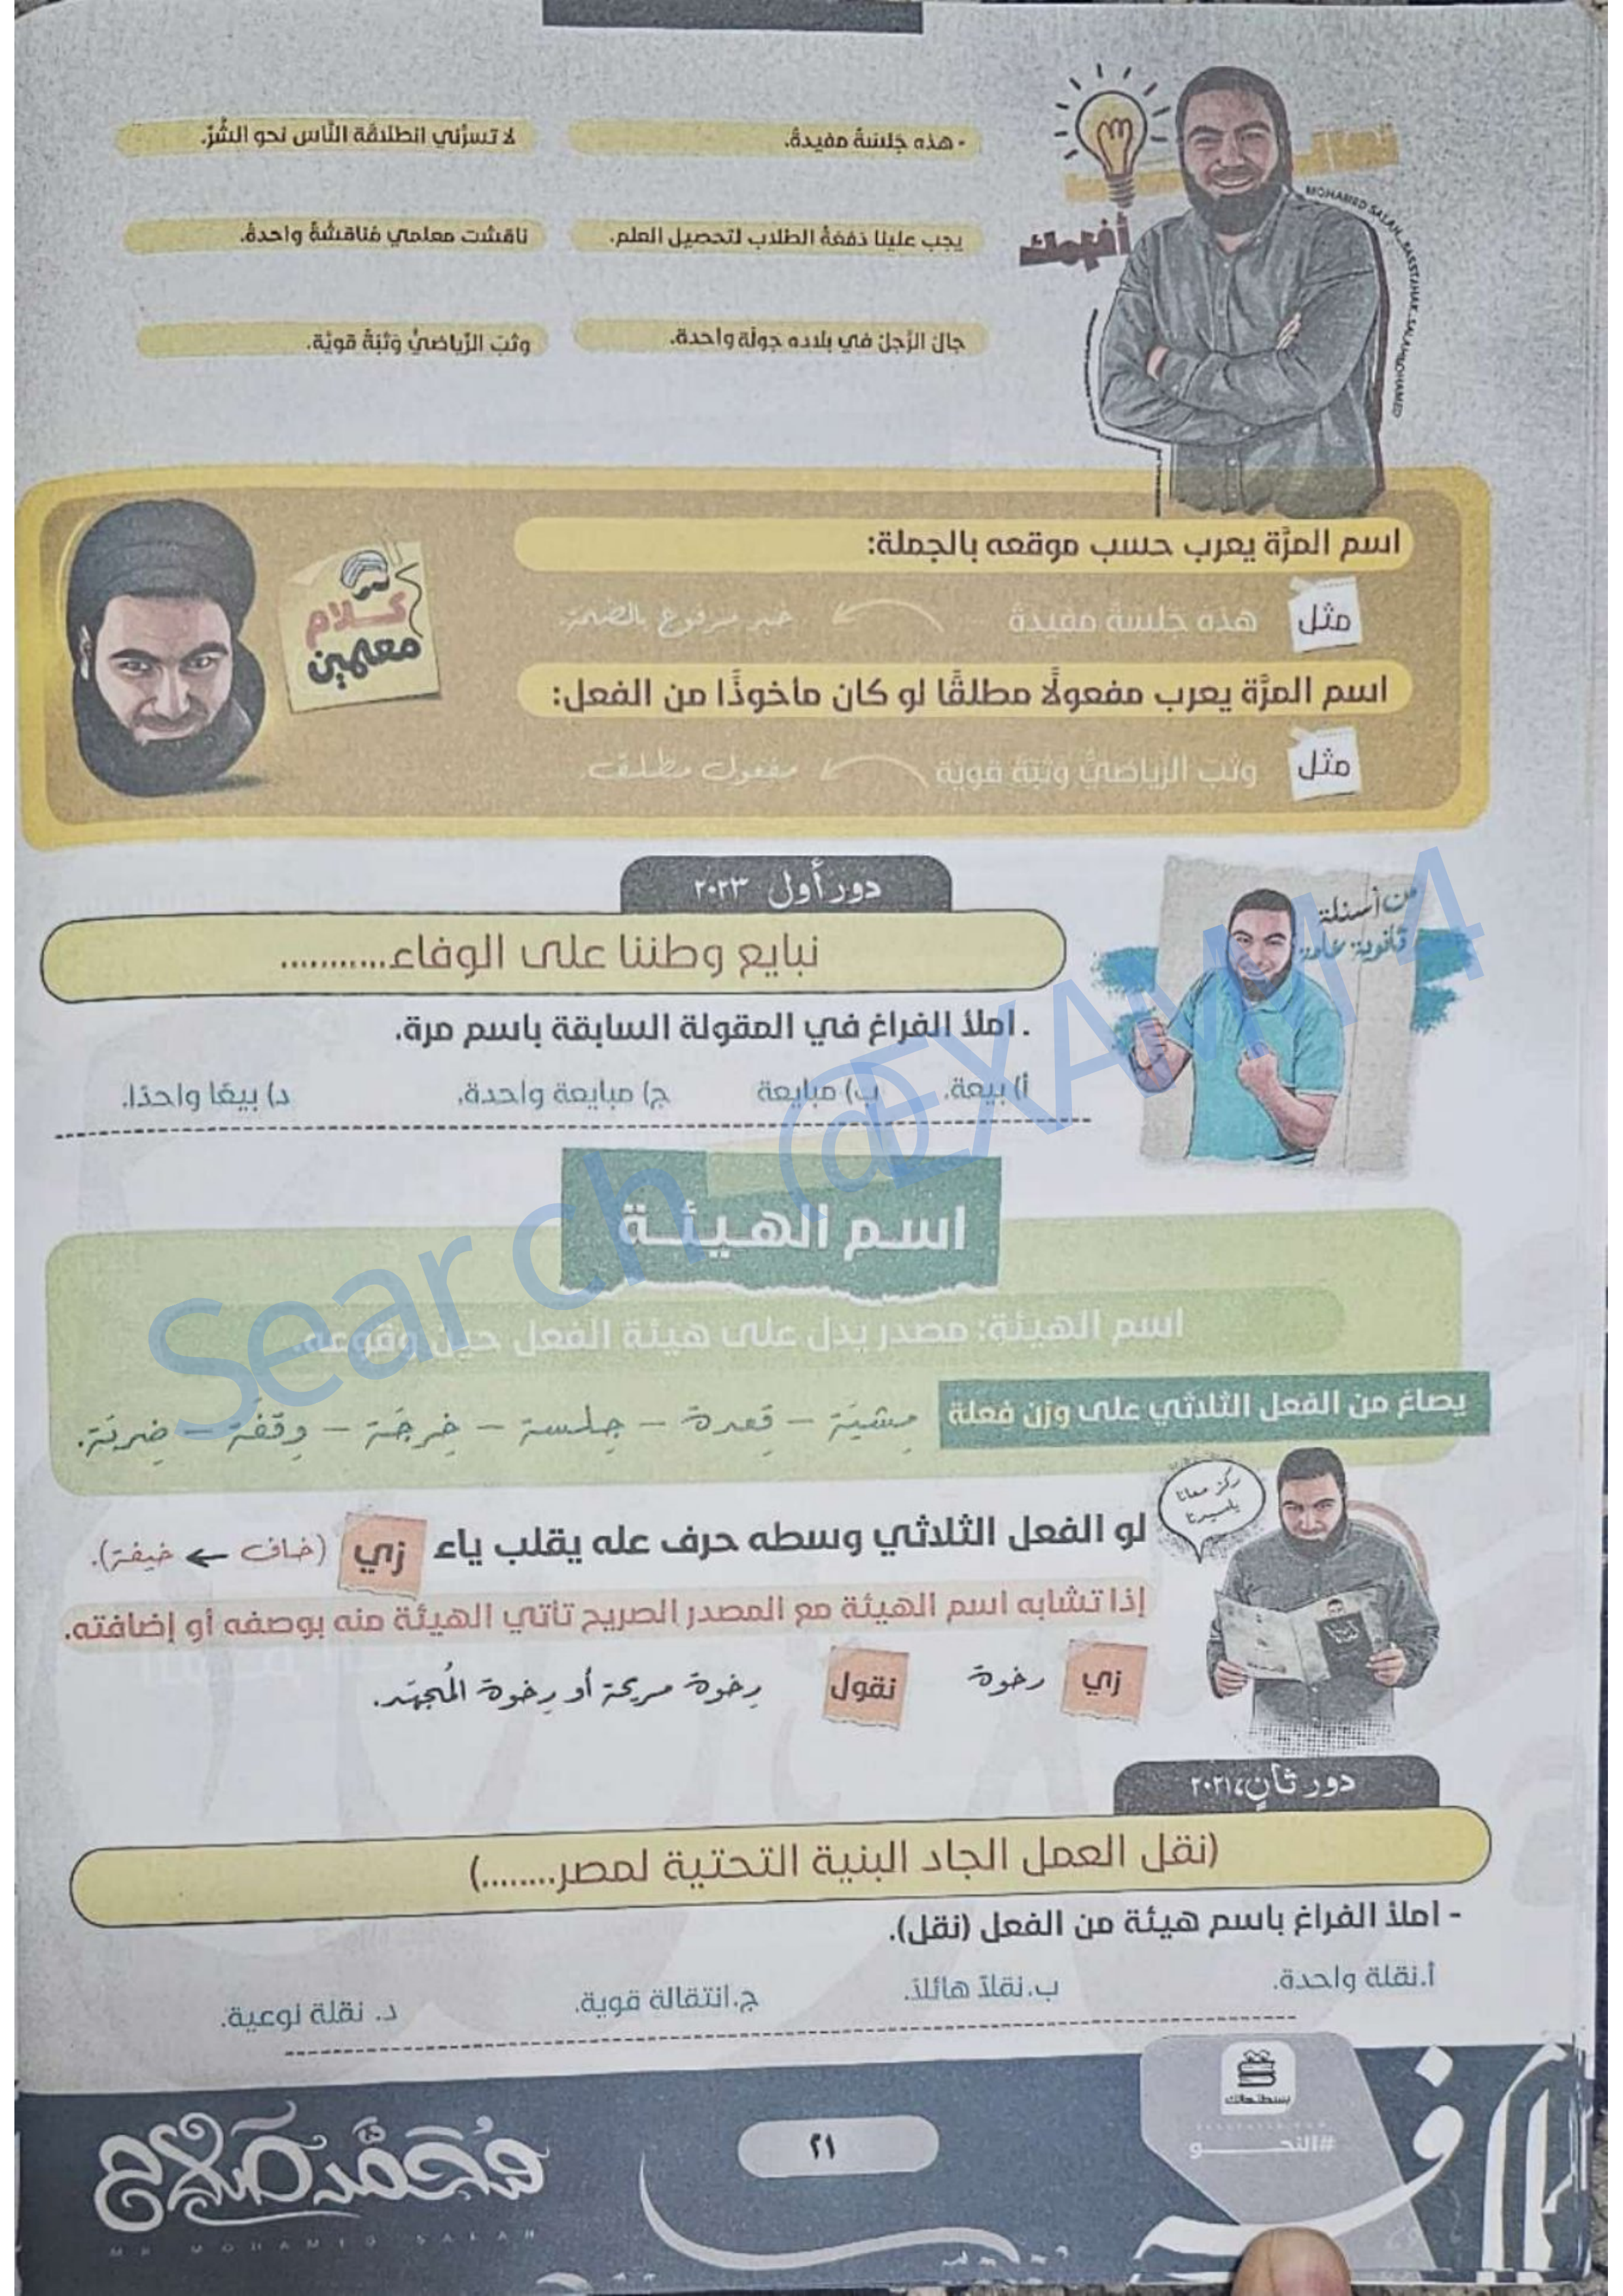 - هذه جَلسَةٌ مفيدةٌ.
لا تسرُّني انطلاقَة النَّاس نحو الشَّرِّ.
يجب علينا دَفعَةُ الطلاب لتحصيل العلم.
ناقشت معلمي مُناقشَةً واحدةً.
جالَ الرَّجلُ في بلاده جولَة واحدة.
وثبَ الرِّياضيُّ وَثبَةً قويَّة.
أفهمك
MOHAMED SALAH
اسم المرَّة يعرب حسب موقعه بالجملة:
مثل هذه جَلسةٌ مفيدةٌ خبر مرفوع بالضمة.
كلام
معلمين
اسم المرَّة يعرب مفعولًا مطلقًا لو كان مأخوذًا من الفعل:
مثل وثبَ الرِّياضيُّ وَثبَةً قويَّة مفعول مطلق.
من أسئلة
ثانوية عامة
دور أول ٢٠٢٣
نبايع وطننا على الوفاء...........
. املأ الفراغ في المقولة السابقة باسم مرة.
أ) بيعة. ب) مبايعة ج) مبايعة واحدة. د) بيعًا واحدًا.
اسم الهيئة
اسم الهيئة: مصدر يدل على هيئة الفعل حين وقوعه.
يصاغ من الفعل الثلاثي على وزن فعلة مِشيَة - قِعدة - جِلسة - خِرجَة - وِقفَة - ضِربَة.
ركز معانا
ياسيدنا
لو الفعل الثلاثي وسطه حرف عله يقلب ياء زي (خاف ← خيفة).
إذا تشابه اسم الهيئة مع المصدر الصريح تأتي الهيئة منه بوصفه أو إضافته.
زي رخوة نقول رِخوة مريحة أو رِخوة المُجهَد.
دور ثانٍ، ٢٠٢١
(نقل العمل الجاد البنية التحتية لمصر........)
- املأ الفراغ باسم هيئة من الفعل (نقل).
أ.نقلة واحدة. ب.نقلاً هائلاً. ج.انتقالة قوية. د. نقلة نوعية.
Search @EXAM14
بسطتهالك
#النحو
٢١
مُحَمَّد صلاح
MR MOHAMED SALAH